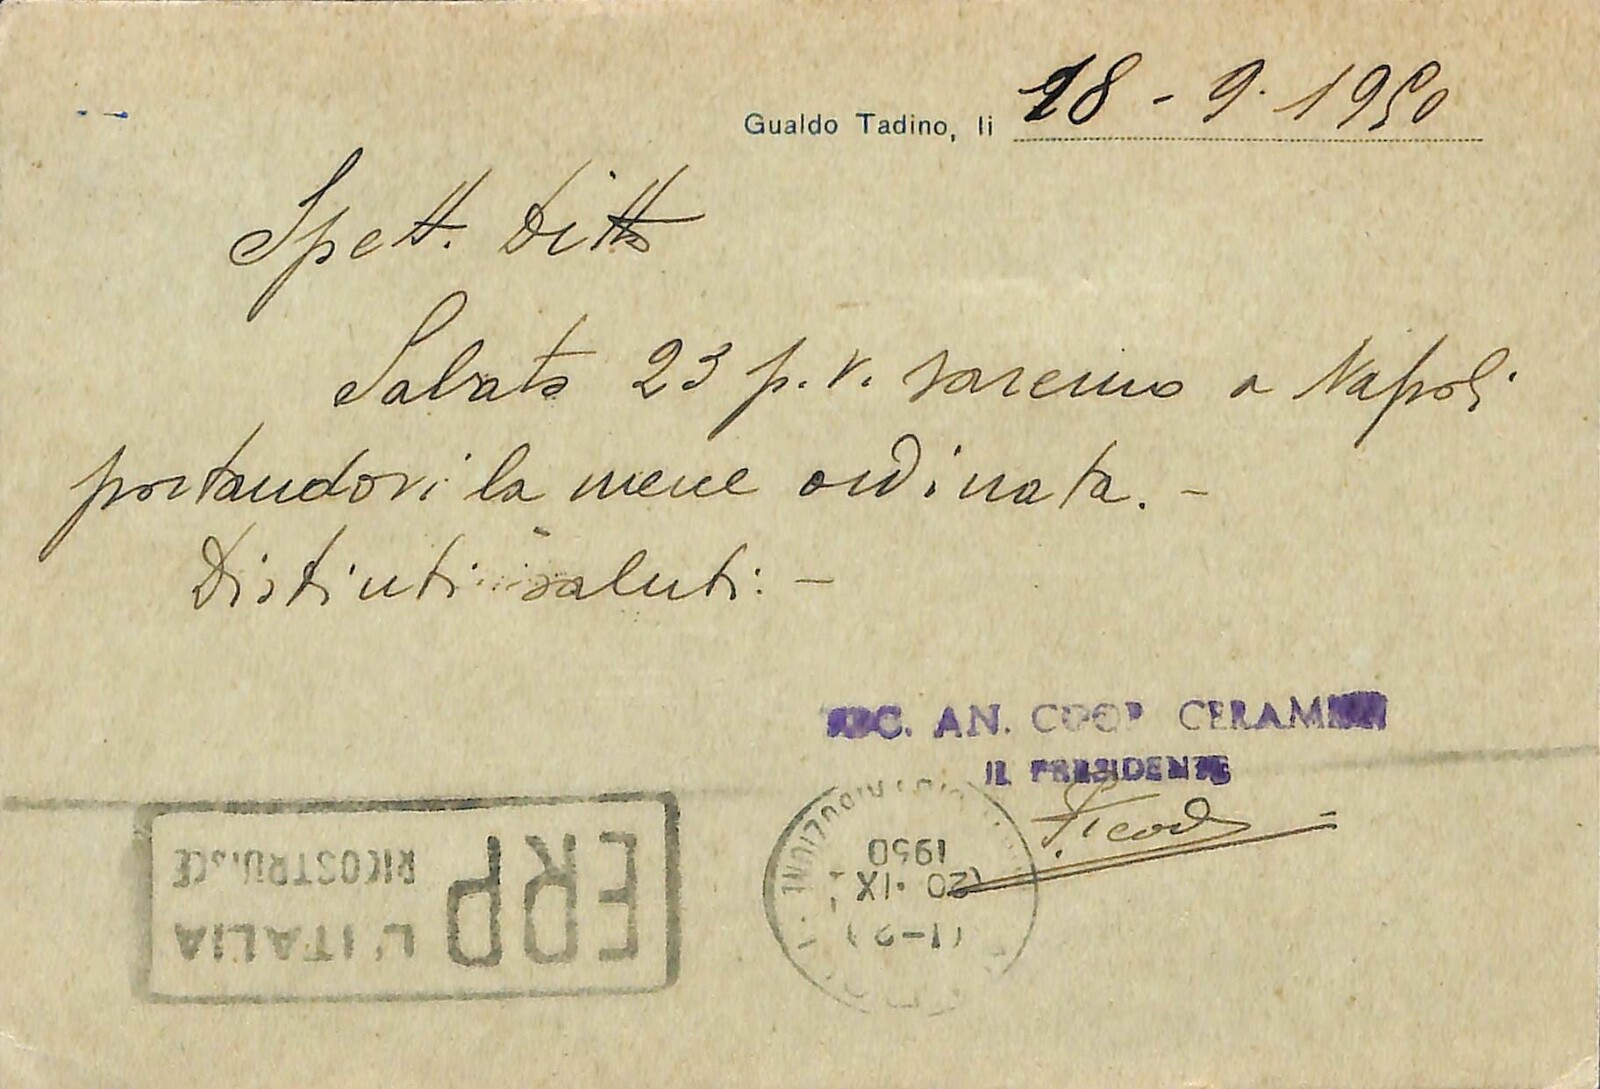 Gualdo Tadino, li 18 - 9. 1950
Spett. Ditta
Sabato 23 p. v. saremo a Napoli
portandovi la merce ordinata. -
Distinti saluti: -
SOC. AN. COOP CERAM
IL PRESIDENTE
1950
20 · IX
ERP
L'ITALIA